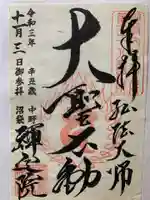 奉拝 弘法大師
大聖不動
令和三年 辛丑歳 中野
十一月三日御参拝 沼袋